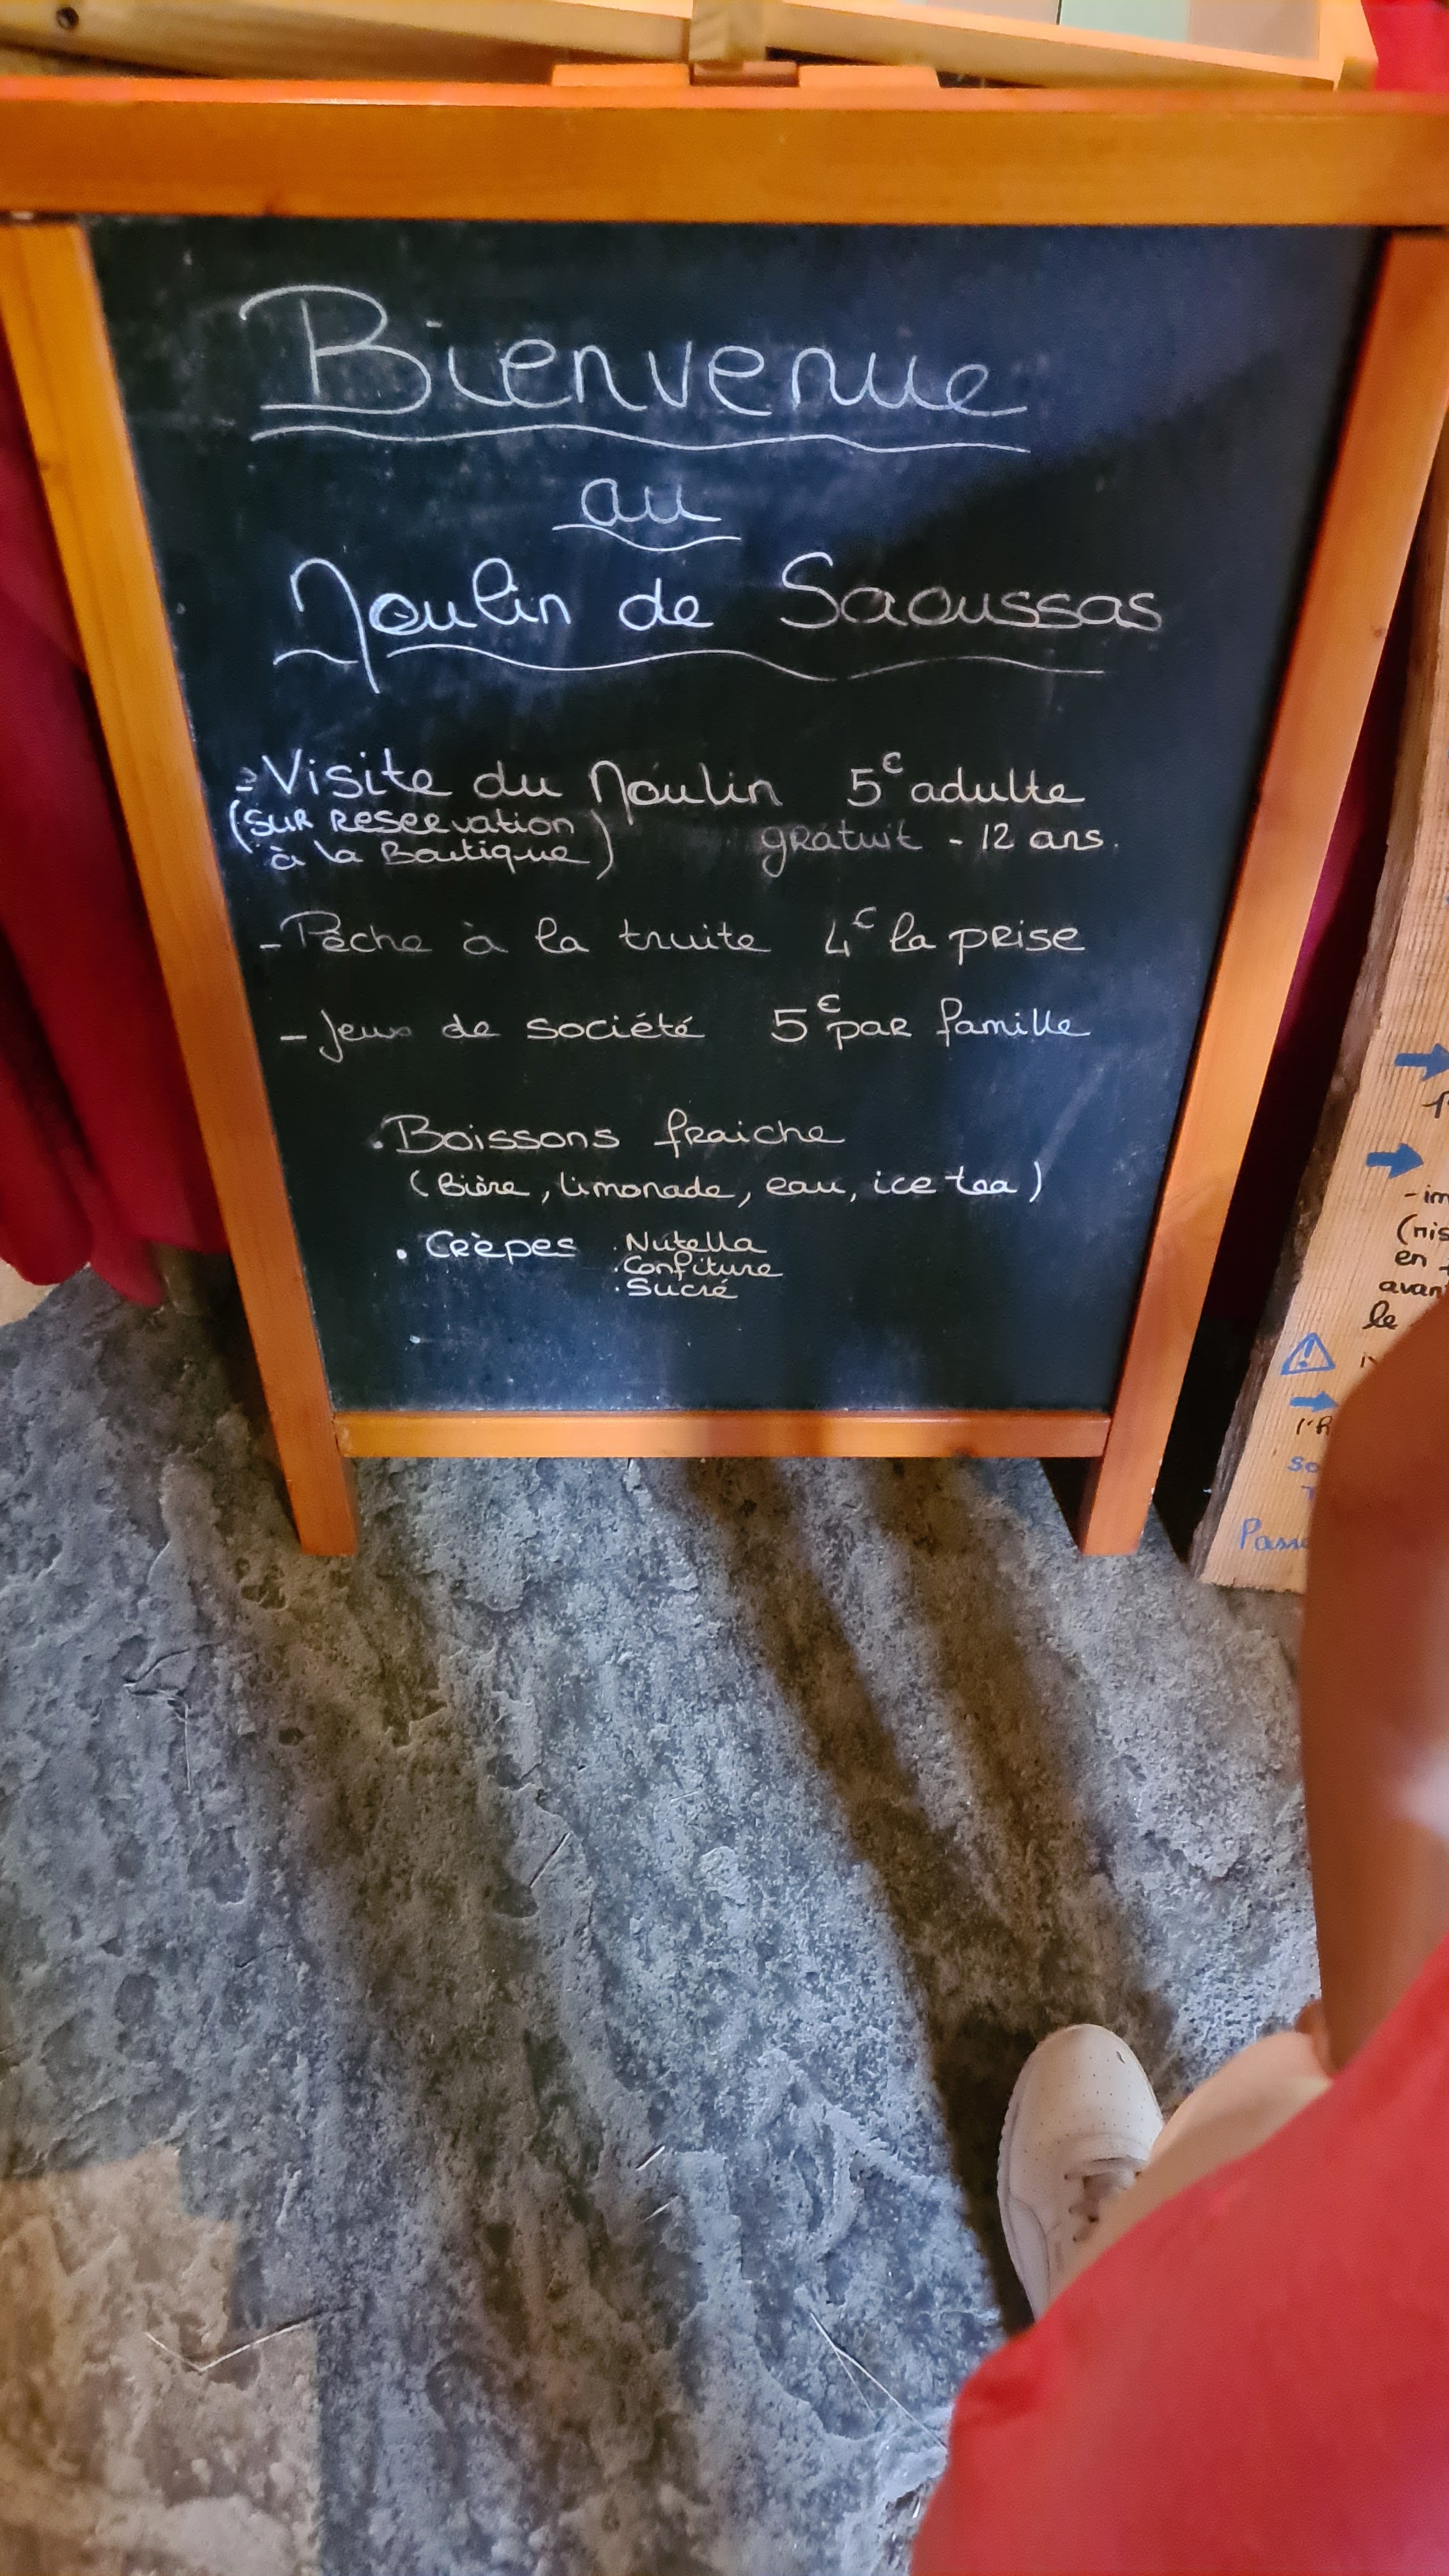 Bienvenue
au
Moulin de Saoussas
- Visite du Moulin 5€ adulte
(sur reservation
à la Boutique) gratuit - 12 ans.
- Pêche à la truite 4€ la prise
- Jeux de société 5€ par famille
. Boissons fraiche
(Bière, limonade, eau, ice tea)
. Crèpes . Nutella
. Confiture
. Sucré
.
en
avan
le
so
Passe